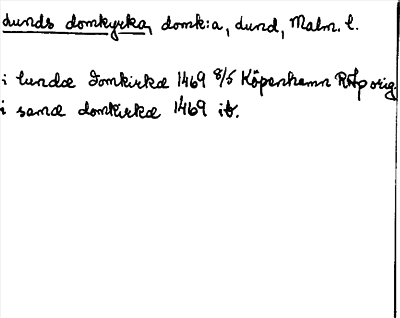 Lunds domkyrka, domk:a, Lund, Malm. l.
i lundæ domkirkæ 1469 8/5 Köpenhamn RAp orig.
i samæ domkirkæ 1469 ib.